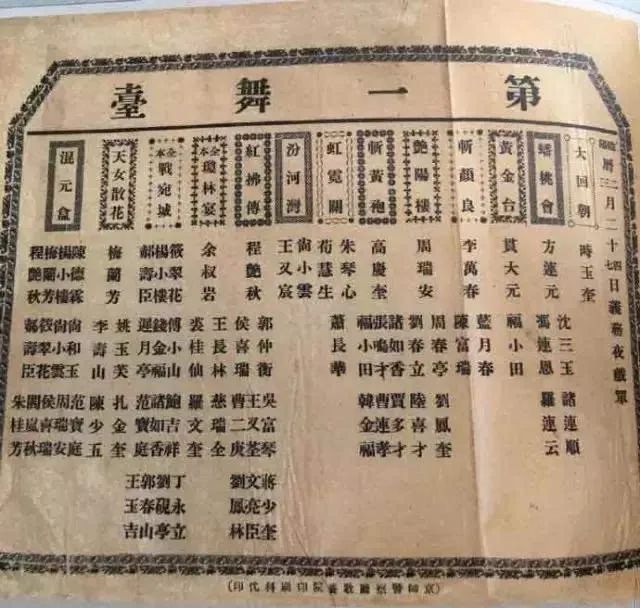 第一舞臺
曆三月二十七四日義務夜戲單
大回朝
時玉奎
蟠桃會
方連元
沈三玉
馮連恩
諸連順
羅連云
黃金台
貫大元
福小田
斬顏良
李萬春
藍月春
陳富瑞
艷陽樓
周瑞安
周春亭
劉春立
諸如香
劉鳳奎
陸喜才
賈多才
斬黃袍
高慶奎
張鳴才
福小田
曹連孝
韓金福
虹霓關
朱琴心
荀慧生
蕭長華
汾河灣
尚小雲
王又宸
紅拂傳
程艷秋
郭仲衡
侯喜瑞
王長林
吳富琴
王又荃
曹二庚
慈瑞全
蔣少奎
文亮臣
劉鳳林
全本瓊林宴
余叔岩
裘桂仙
羅文奎
鮑吉祥
全本戰宛城
筱翠花
楊小樓
郝壽臣
傅小山
錢金福
遲月亭
諸如香
范寶庭
丁永立
硯亭
郭春山
王玉吉
天女散花
梅蘭芳
姚玉芙
李壽山
扎金奎
陳少五
混元盒
陳德霖
楊小樓
梅蘭芳
程艷秋
尚和玉
尚小雲
筱翠花
郝壽臣
范寶庭
周瑞安
侯喜瑞
閻嵐秋
朱桂芳
(京師警察廳教養院印刷科代印)